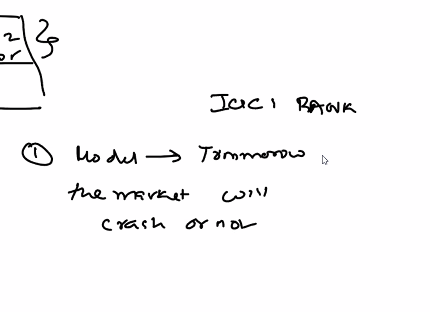 2
or
ICICI BANK
① Model → Tommorow
the market will
crash or not